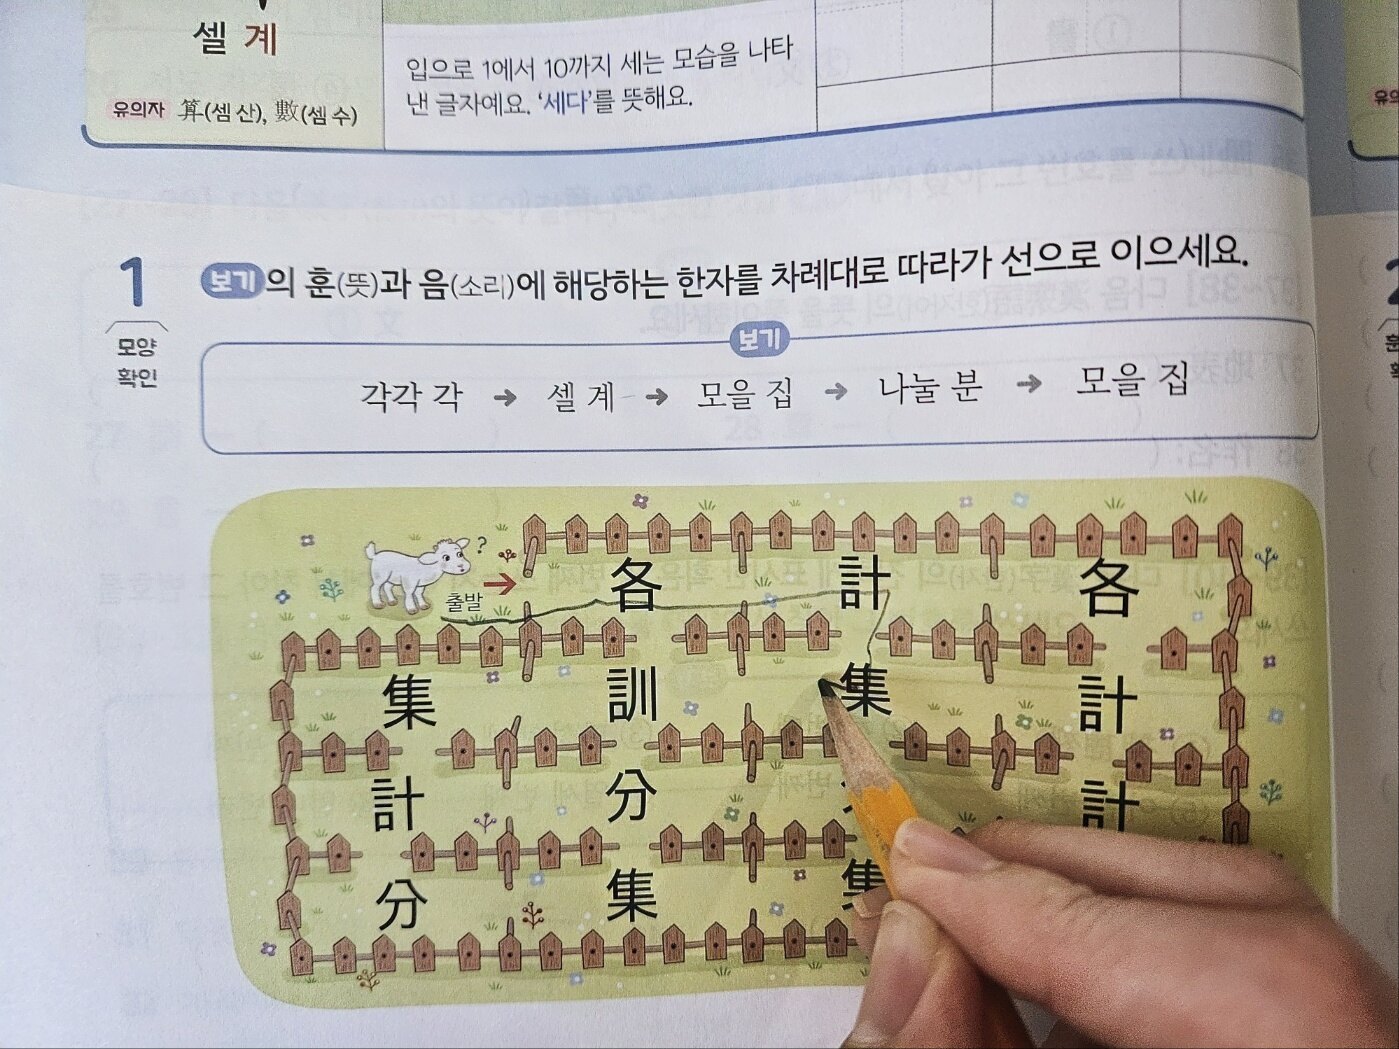 셀 계
유의자 算(셈 산), 數(셈 수)
입으로 1에서 10까지 세는 모습을 나타
낸 글자예요. ‘세다’를 뜻해요.
1
모양
확인
보기의 훈(뜻)과 음(소리)에 해당하는 한자를 차례대로 따라가 선으로 이으세요.
보기
각각 각 → 셀 계 → 모을 집 → 나눌 분 → 모을 집
?
출발
各 計 各
集 訓 集 計
計 分 計
分 集 集